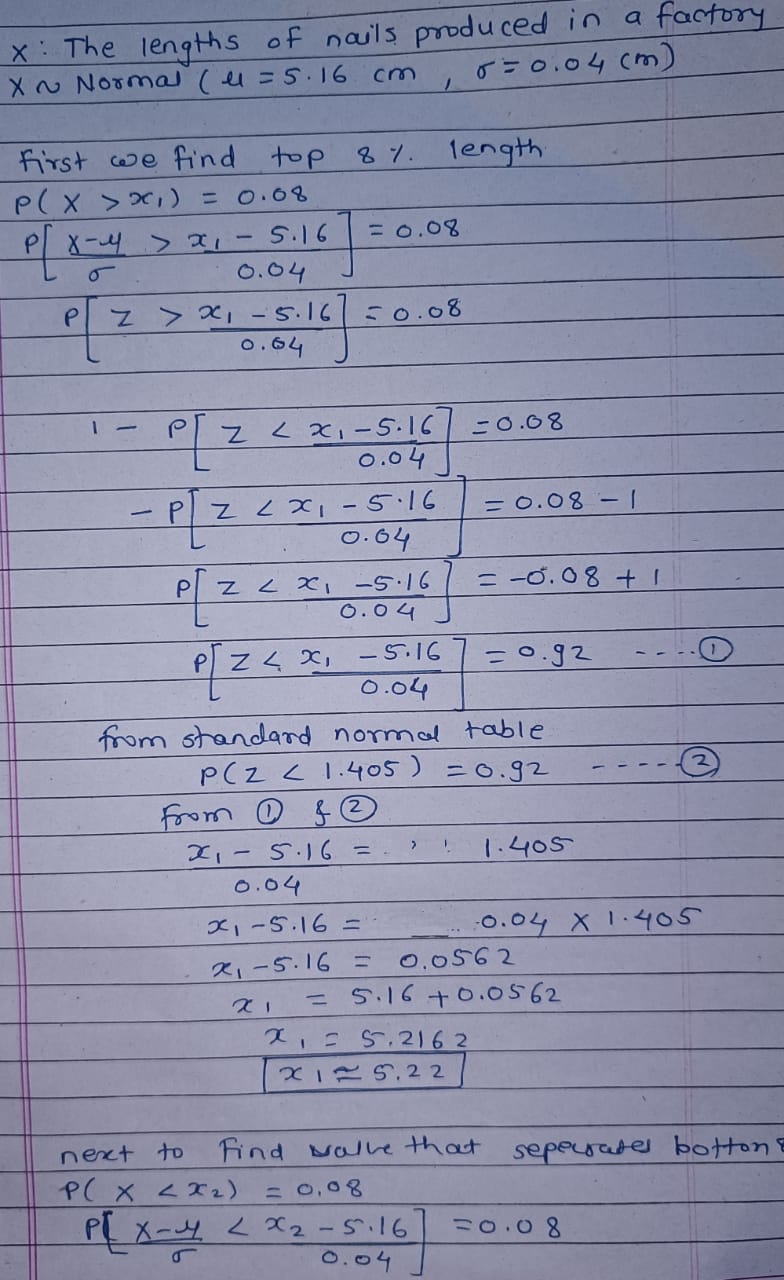 x : The lengths of nails produced in a factory
X ~ Normal ( μ = 5.16 cm , σ = 0.04 cm)
first we find top 8 %. length
P( X > x₁) = 0.08
P[ X-μ/σ > x₁ - 5.16/0.04 ] = 0.08
P[ Z > x₁ - 5.16/0.04 ] = 0.08
1 - P[ Z < x₁ - 5.16/0.04 ] = 0.08
- P[ Z < x₁ - 5.16/0.04 ] = 0.08 - 1
P[ Z < x₁ - 5.16/0.04 ] = -0.08 + 1
P[ Z < x₁ - 5.16/0.04 ] = 0.92 ----①
from standard normal table
P(Z < 1.405) = 0.92 -----②
from ① & ②
x₁ - 5.16/0.04 = 1.405
x₁ - 5.16 = 0.04 X 1.405
x₁ - 5.16 = 0.0562
x₁ = 5.16 + 0.0562
x₁ = 5.2162
x₁ ≃ 5.22
next to find value that seperates bottom 8
P( X < x₂) = 0.08
P[ X-μ/σ < x₂ - 5.16/0.04 ] = 0.08